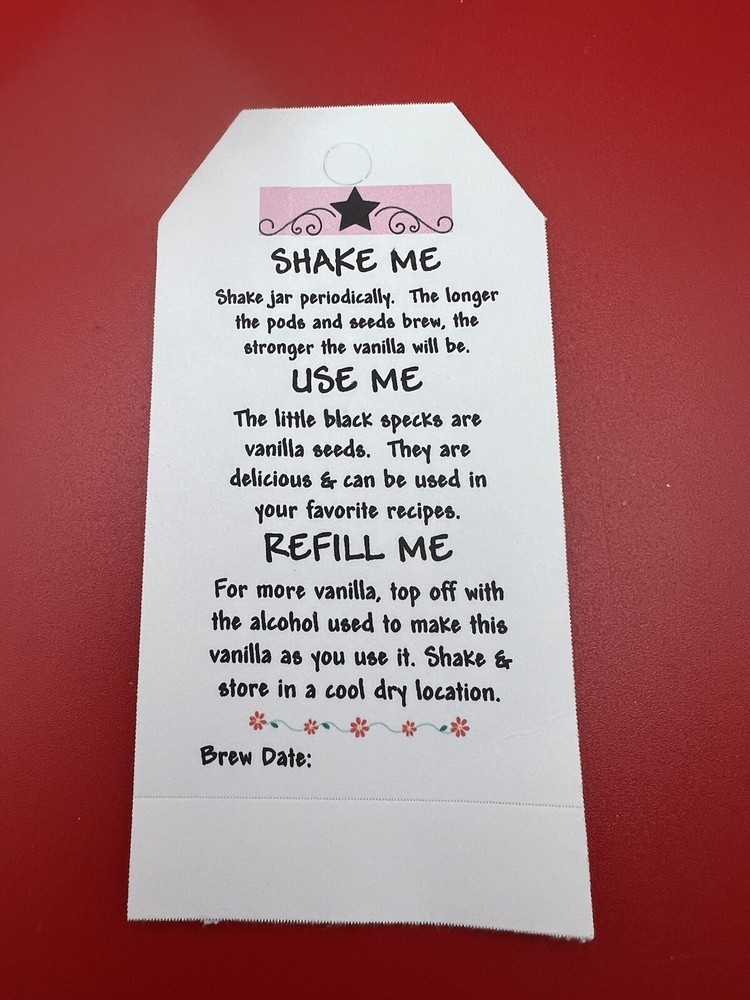 SHAKE ME
Shake jar periodically. The longer
the pods and seeds brew, the
stronger the vanilla will be.
USE ME
The little black specks are
vanilla seeds. They are
delicious & can be used in
your favorite recipes.
REFILL ME
For more vanilla, top off with
the alcohol used to make this
vanilla as you use it. Shake &
store in a cool dry location.
Brew Date: